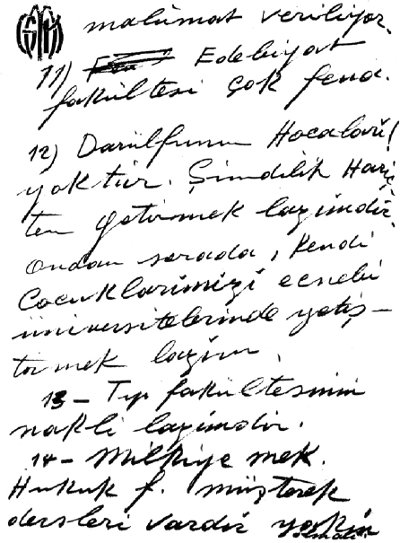 malûmat veriliyor.
11) Edebiyat
fakültesi çok fena.
12) Darülfunun Hocaları
yoktur. Şimdilik Hariç
ten getirmek lazımdır.
Ondan sorada, kendi
Çocuklarimizi ecnebi
üniversitelerinde yetiş-
tirmek lazım.
13 - Tıp fakültesinin
nakli lazimdır.
14 - Mülkiye mek.
Hukuk f. müşterek
dersleri vardır yakın
olmalı